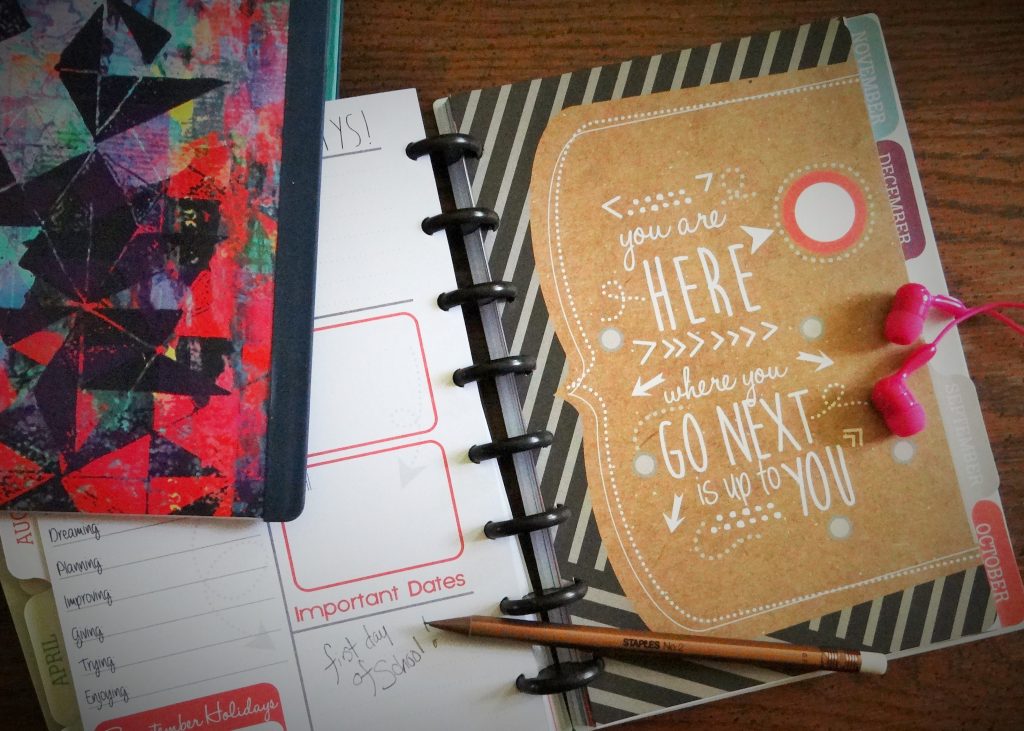 AYS!
Dreaming
Planning
Improving
Giving
Trying
Enjoying
September Holidays
Important Dates
first day
of School!
AUG
APRIL
you are
HERE
where you
GO NEXT
is up to YOU
NOVEMBER
DECEMBER
SEPTEMBER
OCTOBER
STAPLES No.2